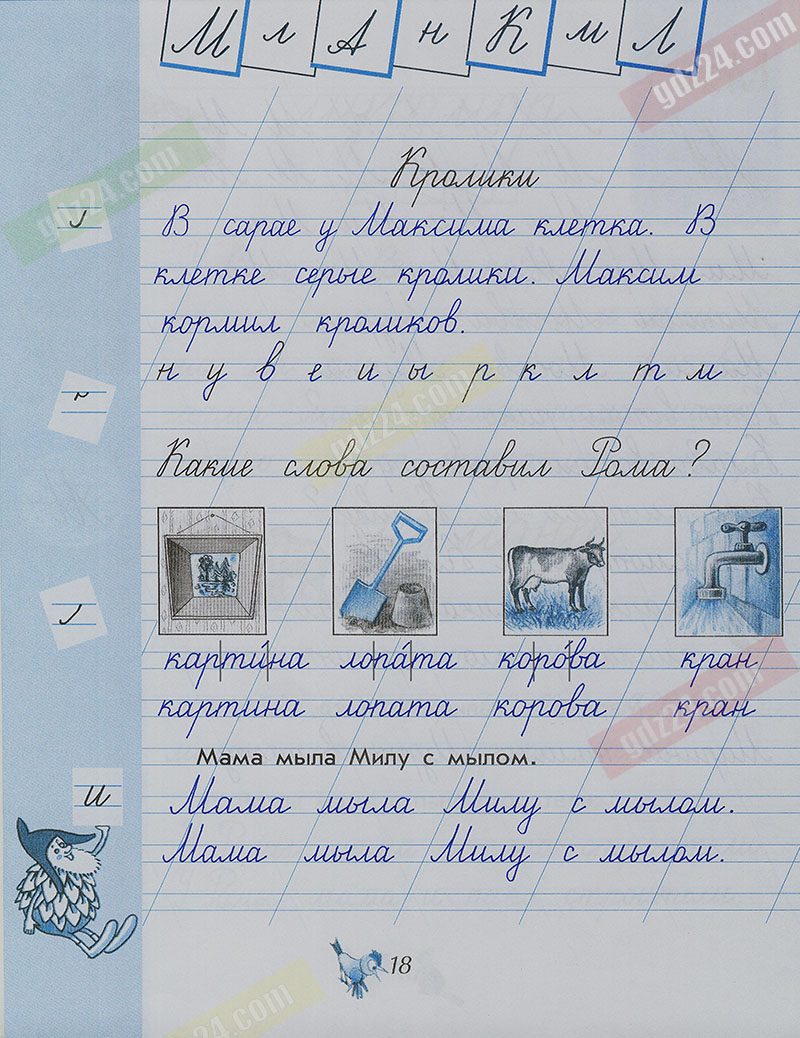 М л А н К м Л
gdz24.com
Кролики
gdz24.com
В сарае у Максима клетка. В
клетке серые кролики. Максим
кормил кроликов.
н у в е и ы р к л т м
gdz24.com
Какие слова составил Рома?
карти́на лопа́та коро́ва кран
картина лопата корова кран
gdz24.com
Мама мыла Милу с мылом.
и
Мама мыла Милу с мылом.
Мама мыла Милу с мылом.
18
gdz24.com